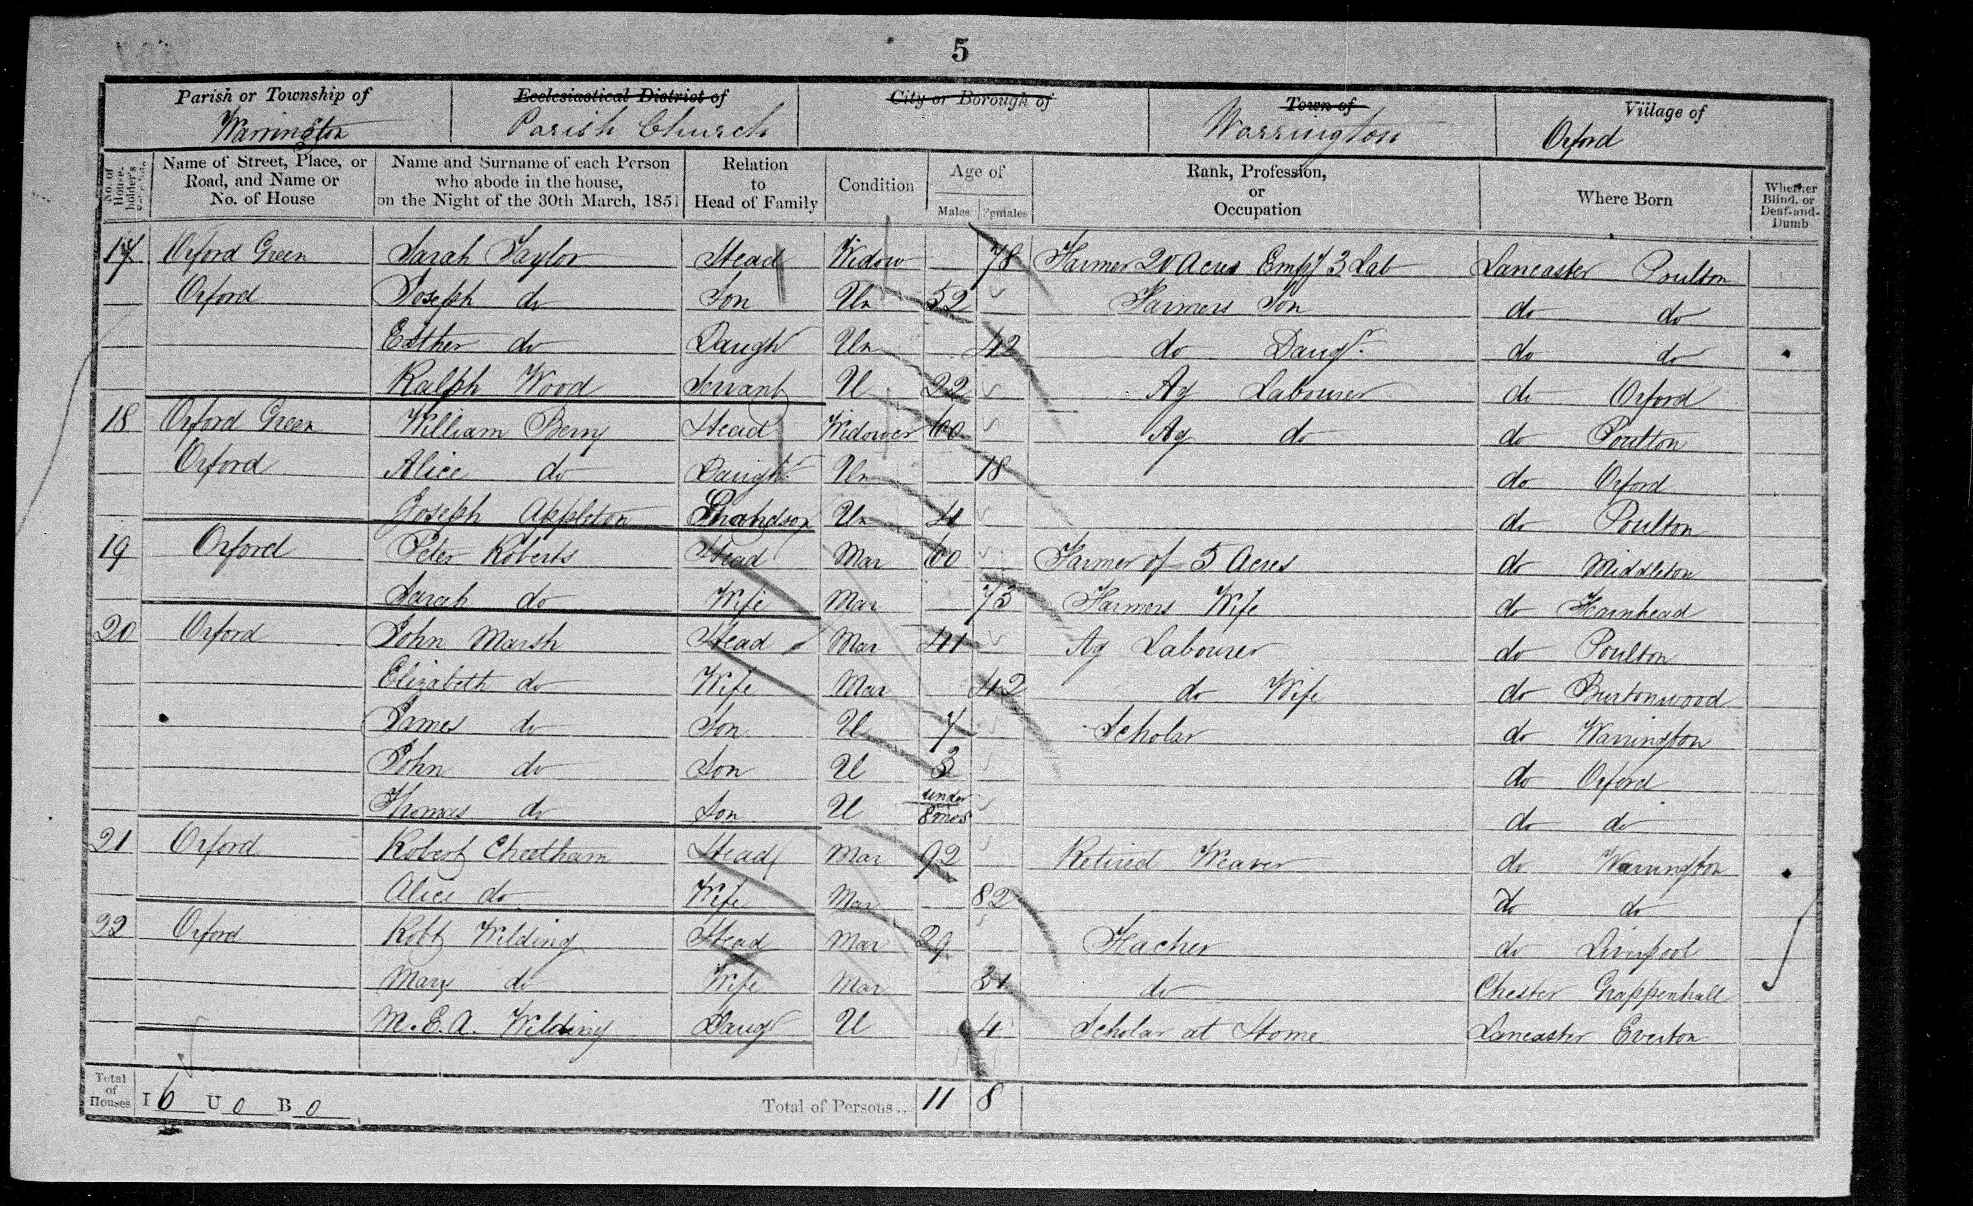 5
Parish or Township of Ecclesiastical District of City or Borough of Town of Village of
Warrington Parish Church Warrington Orford
No. of House-holder's Name of Street, Place, or Road, and Name or No. of House Name and Surname of each Person who abode in the house, on the Night of the 30th March, 1851 Relation to Head of Family Condition Age of Males Females Rank, Profession, or Occupation Where Born Whether Blind, or Deaf-and-Dumb
17 Orford Green Sarah Taylor Head Widow 78 Farmer 20 Acres Empy 3 Lab Lancaster Poulton
Orford Joseph do Son Un 52 Farmers Son do do
Esther do Daugh Un 42 do Daugr. do do
Ralph Wood Servant U 22 Ag Labourer do Orford
18 Orford Green William Berry Head Widower 60 Ag do do Poulton
Orford Alice do Daughr Un 18 do Orford
Joseph Appleton Grandson Un 4 do Poulton
19 Orford Peter Roberts Head Mar 60 Farmer of 5 Acres do Middleton
Sarah do Wife Mar 73 Farmers Wife do Fearnhead
20 Orford John Marsh Head Mar 41 Ag Labourer do Poulton
Elizabeth do Wife Mar 42 do Wife do Burtonwood
James do Son U 7 Scholar do Warrington
John do Son U 3 do Orford
Thomas do Son U under 8 mos do do
21 Orford Robert Cheetham Head Mar 92 Retired Weaver do Warrington
Alice do Wife Mar 82 do do
22 Orford Robt Wilding Head Mar 29 do Liverpool
Mary do Wife Mar do Chester Grappenhall
M. E. A. Wilding Daugr U 4 Scholar at Home Lancaster Everton
Total of Houses I 6 U 0 B 0 Total of Persons.. 11 8